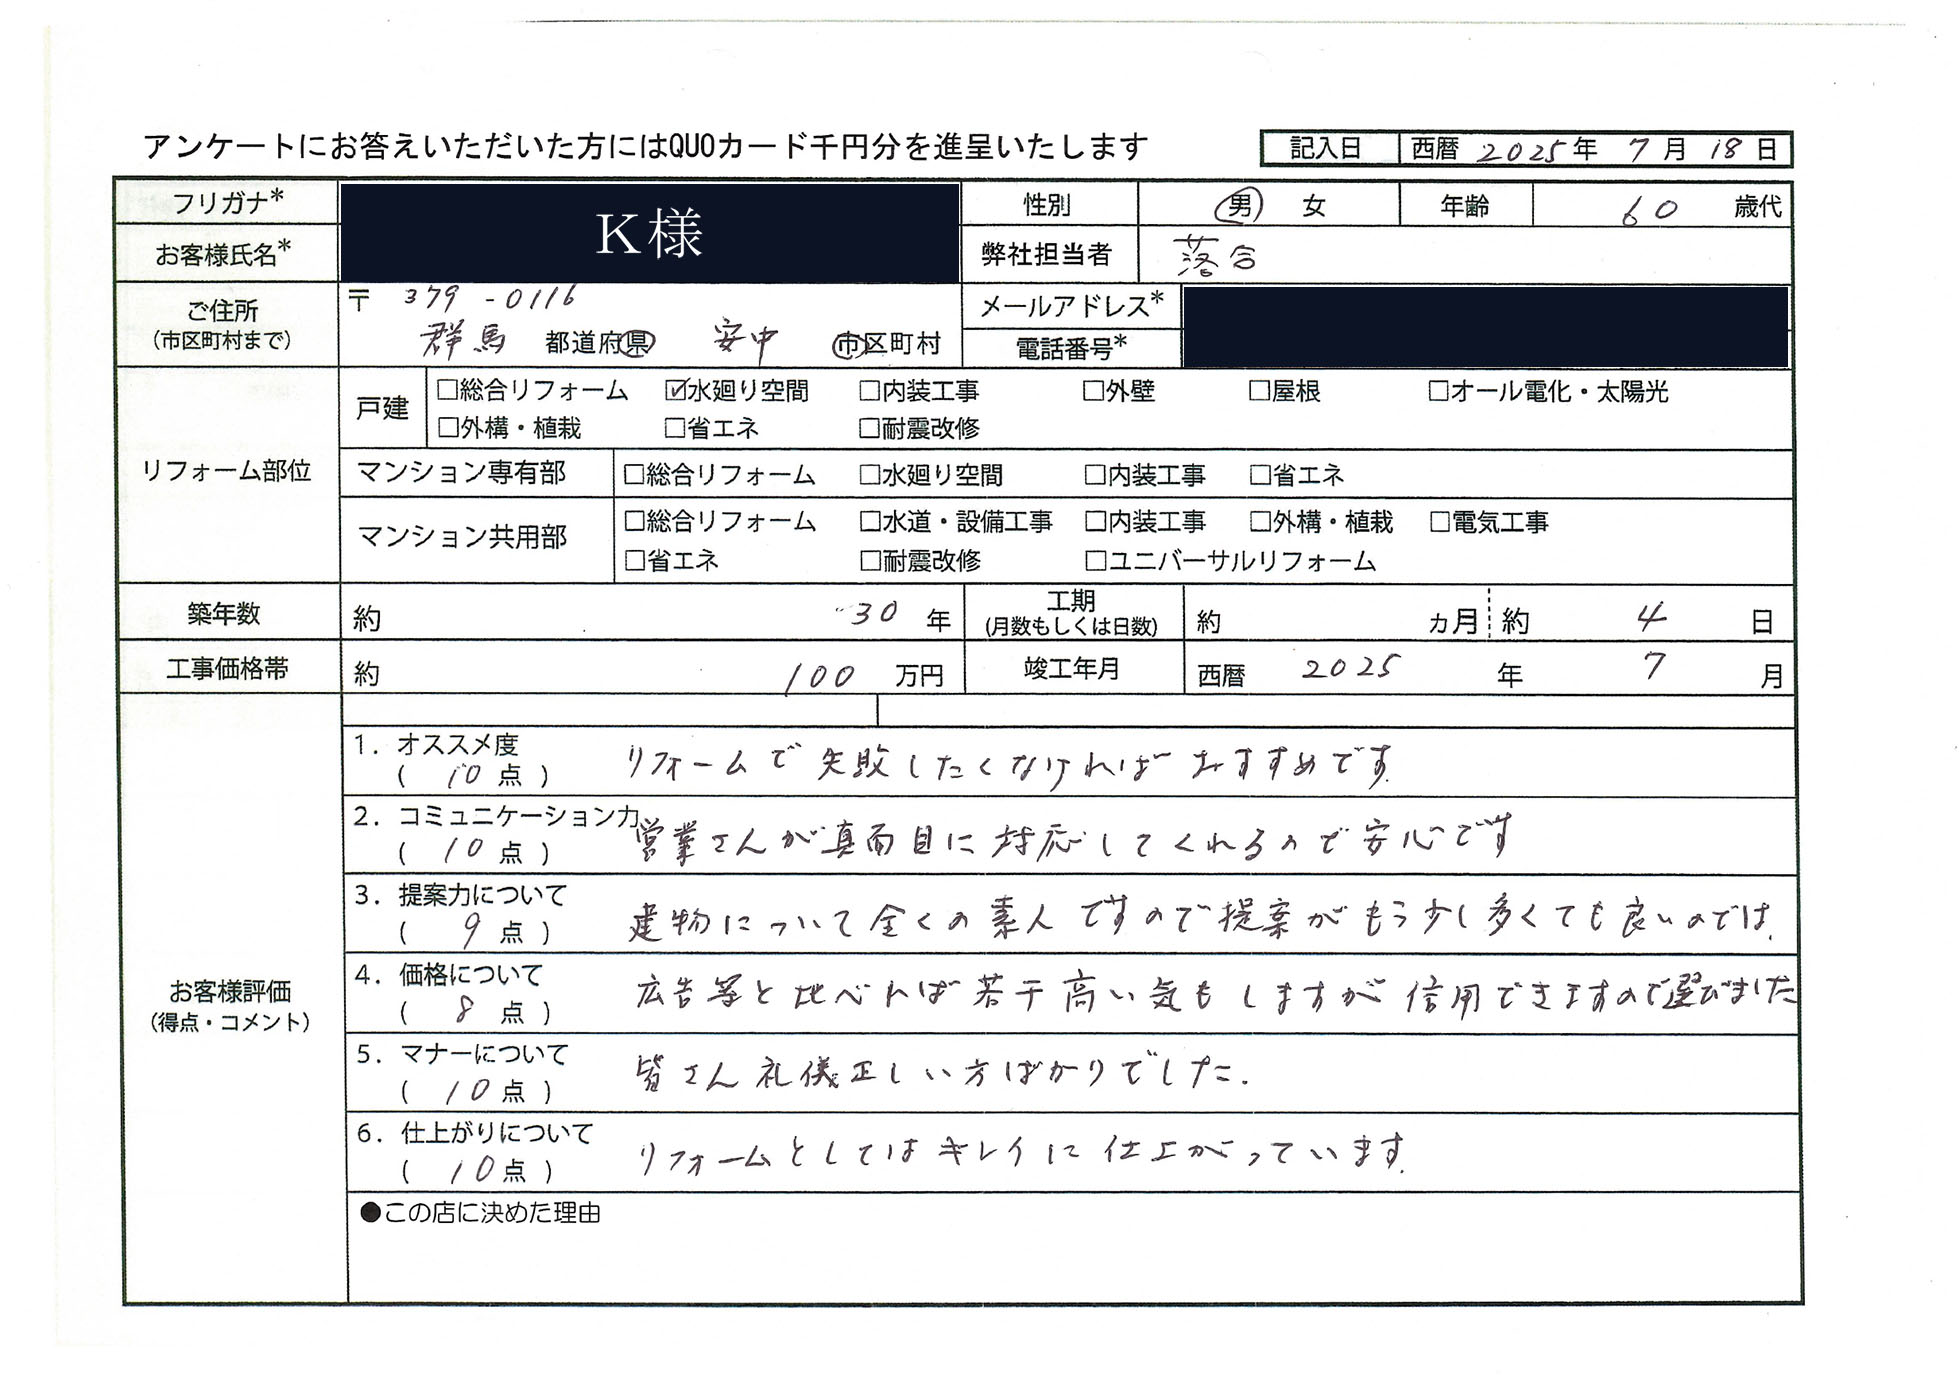 アンケートにお答えいただいた方にはQUOカード千円分を進呈いたします
記入日 西暦 2025 年 7 月 18 日
フリガナ* K様 性別 男 女 年齢 60 歳代
お客様氏名* 弊社担当者 落合
ご住所 (市区町村まで) 〒 379-0116 メールアドレス*
群馬 都道府県 安中 市区町村 電話番号*
リフォーム部位
戸建 □総合リフォーム ☑水廻り空間 □内装工事 □外壁 □屋根 □オール電化・太陽光
□外構・植栽 □省エネ □耐震改修
マンション専有部 □総合リフォーム □水廻り空間 □内装工事 □省エネ
マンション共用部 □総合リフォーム □水道・設備工事 □内装工事 □外構・植栽 □電気工事
□省エネ □耐震改修 □ユニバーサルリフォーム
築年数 約 30 年 工期 (月数もしくは日数) 約 カ月 約 4 日
工事価格帯 約 100 万円 竣工年月 西暦 2025 年 7 月
お客様評価
(得点・コメント)
1. オススメ度
( 10 点 ) リフォームで失敗したくなければおすすめです.
2. コミュニケーション力
( 10 点 ) 営業さんが真面目に対応してくれるので安心です
3. 提案力について
( 9 点 ) 建物について全くの素人ですので提案がもう少し多くても良いのでは.
4. 価格について
( 8 点 ) 広告等と比べれば若干高い気もしますが信用できますので選びました
5. マナーについて
( 10 点 ) 皆さん礼儀正しい方ばかりでした.
6. 仕上がりについて
( 10 点 ) リフォームとしてはキレイに仕上がっています.
●この店に決めた理由